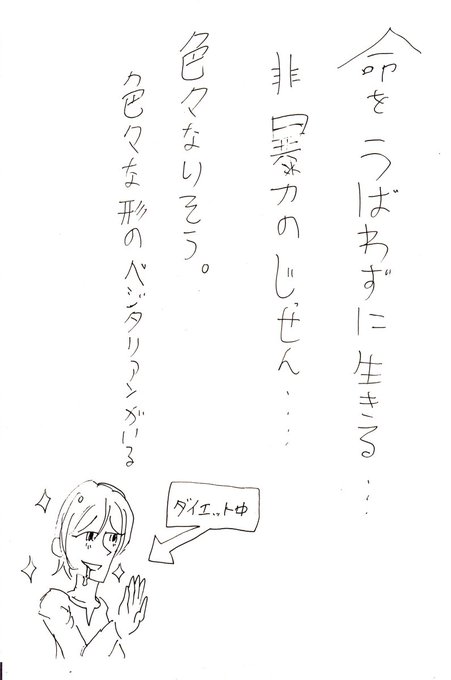 命をうばわずに生きる…
非暴力のじっせん……
色々なりそう。
色々な形のベジタリアンがいる
ダイエット中